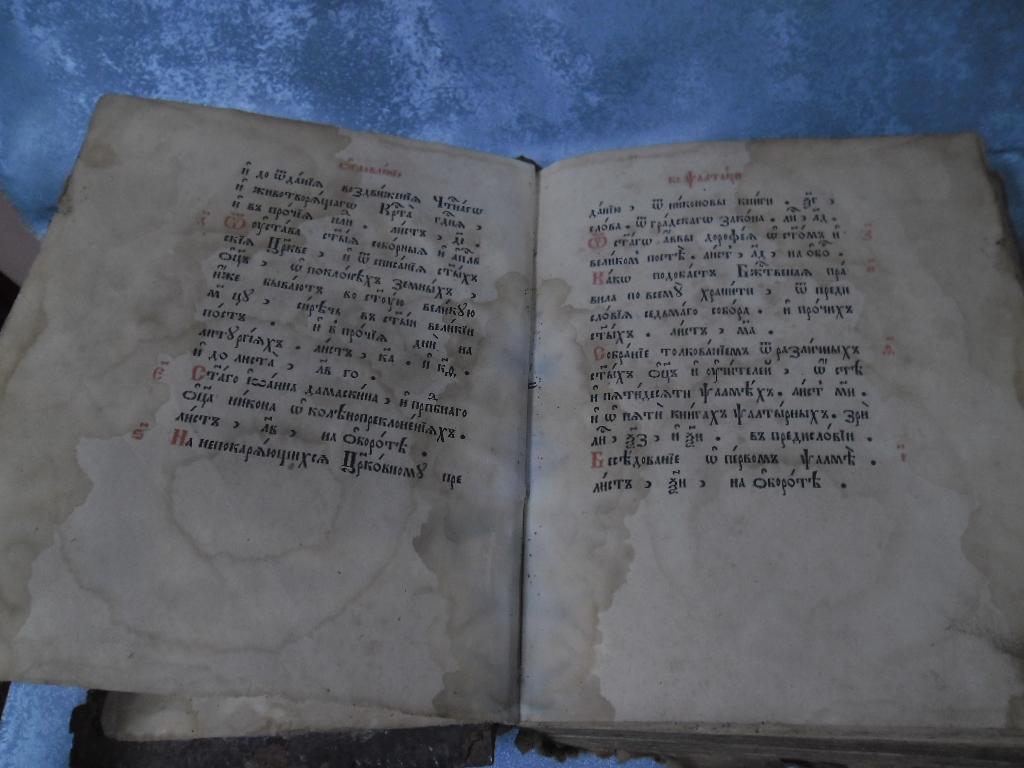 и҆ до ѿда́нїѧ воздви́женїѧ Чт҇на́гѡ
и҆ животворѧ́щагѡ Кр҇та̀ гд҇нѧ,
и҆ въ про́чїѧ дни̑. листъ,
Ѿ ᲂу҆ста́ва ст҃ы́ѧ собо́рныѧ и҆ а҆пⷭ҇лскїѧ
скїѧ Цр҃кве, и҆ ѿ писа́нїѧ ст҃ы́хъ
Ѻ҆ц҃ъ, ѡ҆ покло́нѣхъ земны́хъ,
и҆́же быва́ютъ во ст҃ꙋ́ю вели́кꙋю
м҃ цꙋ, си́рѣчь въ ст҃ы́и вели́кїи
постъ. и҆ въ про́чїѧ дни̑ на
литꙋргі́ѧхъ. листъ, к҃а. и҆ к҃ѳ,
и҆ до листа̀, л҃в го.
С҃та́гѡ і҆ѡа́нна дамаскина̀, и҆ прпⷣбнаго
ѻ҆ц҃а̀ ни́кона ѡ҆ колѣнопреклоне́нїѧхъ.
листъ, л҃в, на ѻ҆боро́тѣ.
На непокарѧ́ющихсѧ Цр҃ко́вномꙋ пре
да́нїю, ѿ ни́коновы кни́ги. л҃г,
сло́ва. ѿ гра́дскагѡ зако́на. ли̑, л҃д.
Ѿ ст҃а́гѡ а҆́ввы дорофе́ѧ ѡ҆ ст҃о́мъ и҆
вели́комъ постѣ̀. лист, л҃д, на ѻ҆бо.
Ка́кѡ подоба́етъ Бжⷭ҇твеннаѧ пра́
вила по всемꙋ̀ храни́ти, ѿ преди
сло́вїѧ седьма́го собо́ра. и҆ про́чихъ
ст҃ы́хъ. листъ, м҃а.
Собра́нїе толкова́нїемъ ѿ разли́чныхъ
ст҃ы́хъ ѻ҆ц҃ъ и҆ ᲂу҆чи́телеи, ѡ҆ стѣ̀
и҆ пѧти́десѧти ѱалмѣ́хъ. лист м҃и.
и҆ ѡ҆ пѧтѝ кни́гах ѱалты́рныхъ. Зрѝ
ли̑, ѯ҃з, и҆ ѯ҃и. въ предисло́вїи.
Бесѣ́дованїе ѡ҆ пе́рвомъ ѱалмѣ̀.
листъ, ѯ҃и, на ѻ҆боро́тѣ.